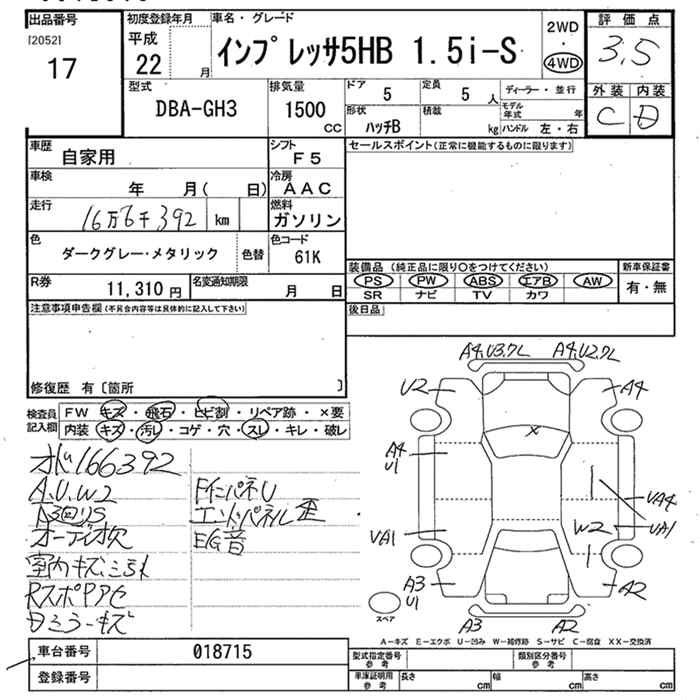 出品番号
[2052]
17
初度登録年月
平成
22 月
車名・グレード
インプレッサ5HB 1.5i-S
2WD
・
4WD
評価点
3.5
外装 内装
C D
型式
DBA-GH3
排気量
1500
CC
ドア
5
定員
5 人
ディーラー・並行
モデル年式 年
形状
ハッチB
積載
kg
ハンドル 左・右
車歴
自家用
シフト
F5
車検
年 月( 日)
冷房
AAC
走行
16万6千392 km
燃料
ガソリン
色
ダークグレー・メタリック
色替
色コード
61K
R券
11,310 円
名変通知期限
月 日
セールスポイント(正常に機能するものに限ります)
装備品(純正品に限り○をつけてください)
新車保証書
PS PW ABS エアB AW
有・無
SR ナビ TV カワ
後日品
注意事項申告欄(不具合内容等は具体的に記入して下さい)
修復歴 有〔箇所 〕
検査員記入欄
FW キズ・飛石・ヒビ割・リペア跡・×要
内装 キズ・汚レ・コゲ・穴・スレ・キレ・破レ
オド166392
A.U.W2
オーディオ欠
室内キズ
RスポPアセ
日ミラーキズ
FインパネU
エンドパネル歪
EG音
A4.U3.ワレ
A4.U2.ワレ
U2
A4
A4
U1
X
VA4
VA1
VA1
W2
A3
U1
A2
A3
A2
スペア
A-キズ E-エクボ U-凹み W-補修跡 S-サビ C-腐食 XX-交換済
車台番号
018715
登録番号
型式指定番号
参考
類別区分番号
参考
車庫証明用
参考
長さ cm
幅 cm
高さ cm